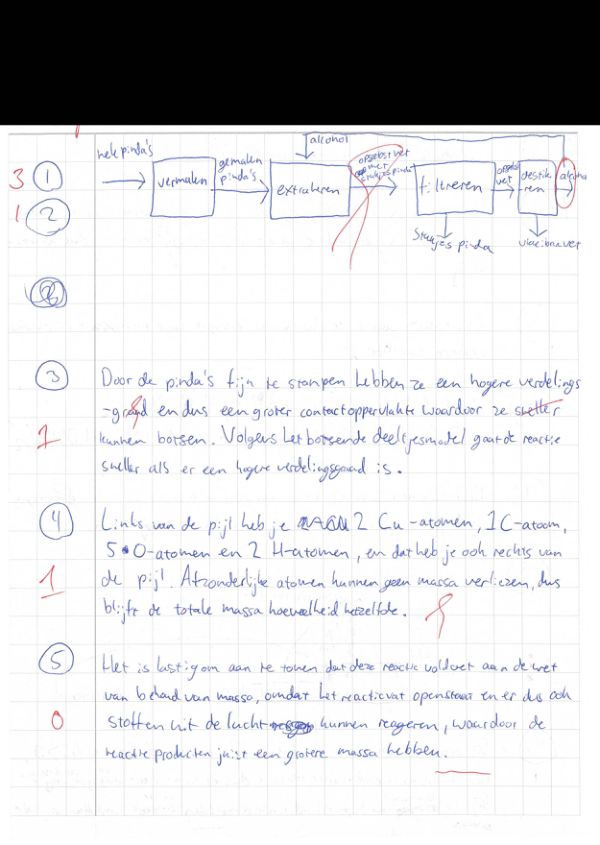 hele pinda's
alcohol
3 1
vermalen
gemalen pinda's
extraheren
opgelost vet
met
stukjes pinda
filtreren
opgelost vet
destilleren
alcohol
1 2
stukjes pinda
vloeibaar vet
3
Door de pinda's fijn te stampen hebben ze een hogere verdelings
-graad en dus een groter contactoppervlakte waardoor ze sneller
1
kunnen botsen. Volgens het botsende deeltjesmodel gaat de reactie
sneller als er een hogere verdelingsgraad is.
4
Links van de pijl heb je 2 Cu-atomen, 1 C-atoom,
5 O-atomen en 2 H-atomen, en dat heb je ook rechts van
1
de pijl. Afzonderlijke atomen kunnen geen massa verliezen, dus
blijft de totale massa hoeveelheid hetzelfde.
5
Het is lastig om aan te tonen dat deze reactie voldoet aan de wet
van behoud van massa, omdat het reactievat openstaat en er dus ook
0
stoffen uit de lucht kunnen reageren, waardoor de
reactie producten juist een grotere massa hebben.